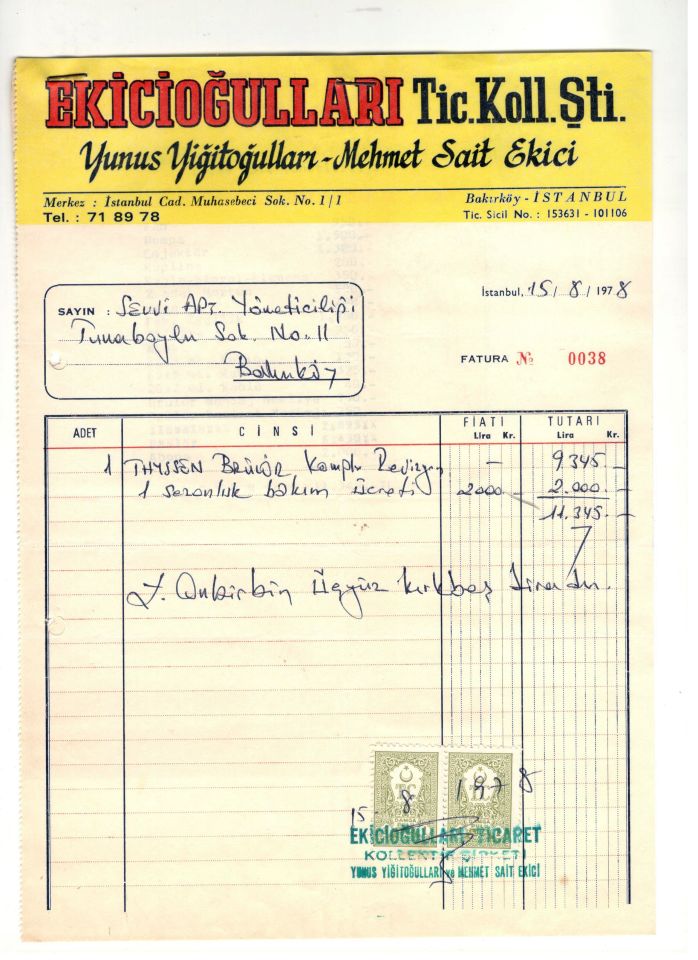 EKİCİOĞULLARI Tic. Koll. Şti.
Yunus Yiğitoğulları - Mehmet Sait Ekici
Merkez : İstanbul Cad. Muhasebeci Sok. No. 1/1
Bakırköy - İSTANBUL
Tel. : 71 89 78
Tic. Sicil No. : 153631 - 101106
İstanbul, 15 / 8 / 1978
SAYIN : Sevvi APT. Yöneticiliği
Sok. No. 11
Bakırköy
FATURA No 0038
ADET CİNSİ FİATI TUTARI
Lira Kr. Lira Kr.
1 THYSSEN BRÜLÖR Komple Revizyon — 9.345.—
1 sezonluk bakım ücreti 2000.— 2.000.—
11.345.—
Y. Onbirbin Üçyüz kırkbeş liradır.
15 8 1978
T C
DAMGA
EKİCİOĞULLARI TİCARET
KOLLEKTİF ŞİRKETİ
YUNUS YİĞİTOĞULLARI ve MEHMET SAİT EKİCİ